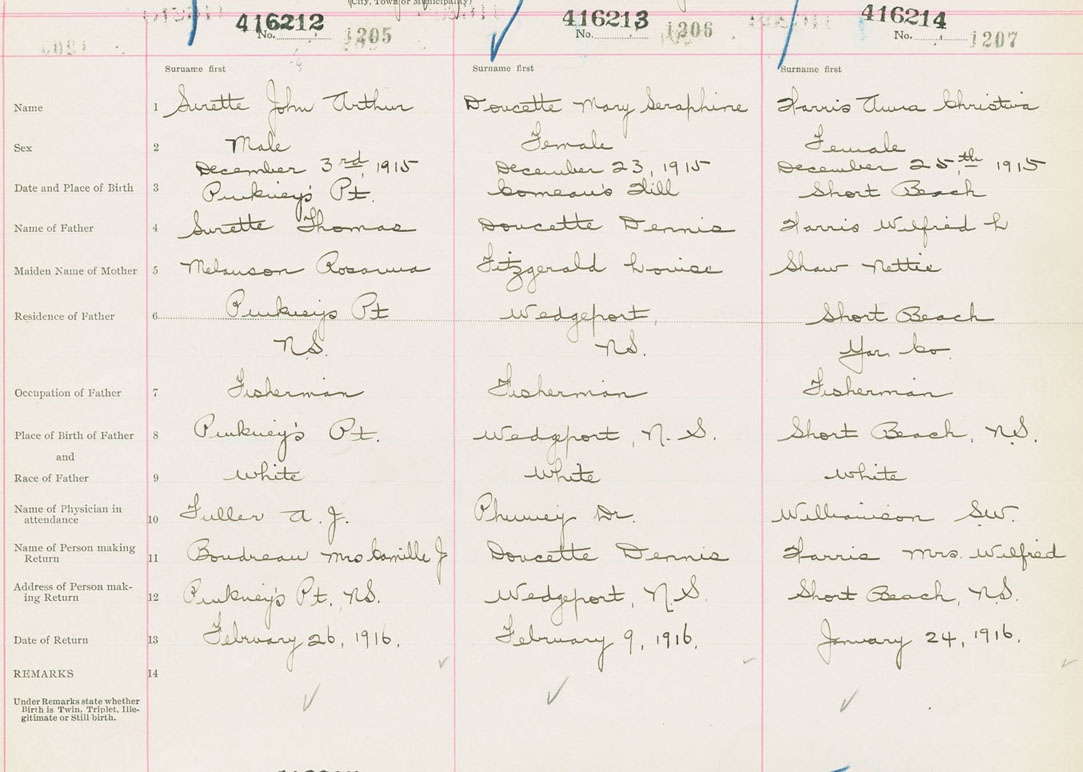 (City, Town or Municipality)
416212 416213 416214
No. 1205 No. 1206 No. 1207
Surname first Surname first Surname first
Name 1 Surette John Arthur Doucette Mary Seraphine Harris Anna Christina
Sex 2 Male Female Female
December 3rd, 1915 December 23, 1915 December 25,th 1915
Date and Place of Birth 3 Pinkney's Pt. Comeau's Hill Short Beach
Name of Father 4 Surette Thomas Doucette Dennis Harris Wilfred L
Maiden Name of Mother 5 Melanson Rosanna Fitzgerald Louise Shaw Nettie
Residence of Father 6 Pinkneys Pt Wedgeport, Short Beach
N.S. N.S. Yar. Co.
Occupation of Father 7 Fisherman Fisherman Fisherman
Place of Birth of Father 8 Pinkney's Pt. Wedgeport, N.S. Short Beach, N.S.
and
Race of Father 9 White White White
Name of Physician in
attendance 10 Fuller A. J. Phinney Dr. Williamson S.W.
Name of Person making
Return 11 Boudreau Mrs Camille J Doucette Dennis Harris Mrs. Wilfred
Address of Person mak-
ing Return 12 Pinkney's Pt. N.S. Wedgeport, N.S. Short Beach, N.S.
Date of Return 13 February 26, 1916. February 9, 1916. January 24, 1916.
REMARKS 14
Under Remarks state whether
Birth is Twin, Triplet, Ille-
gitimate or Still birth.